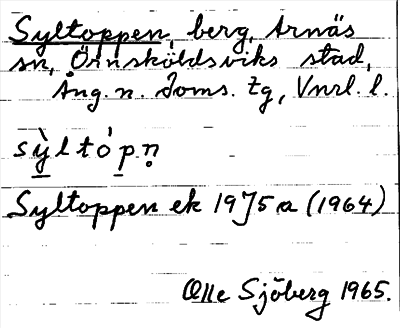 Syltoppen, berg, Arnäs
sn, Örnsköldsviks stad,
Ång. n. Joms. tg, Vnrl. l.
sỳ̲ltó̱p̲n̥
Syltoppen ek 19J5a (1964)
Olle Sjöberg 1965.